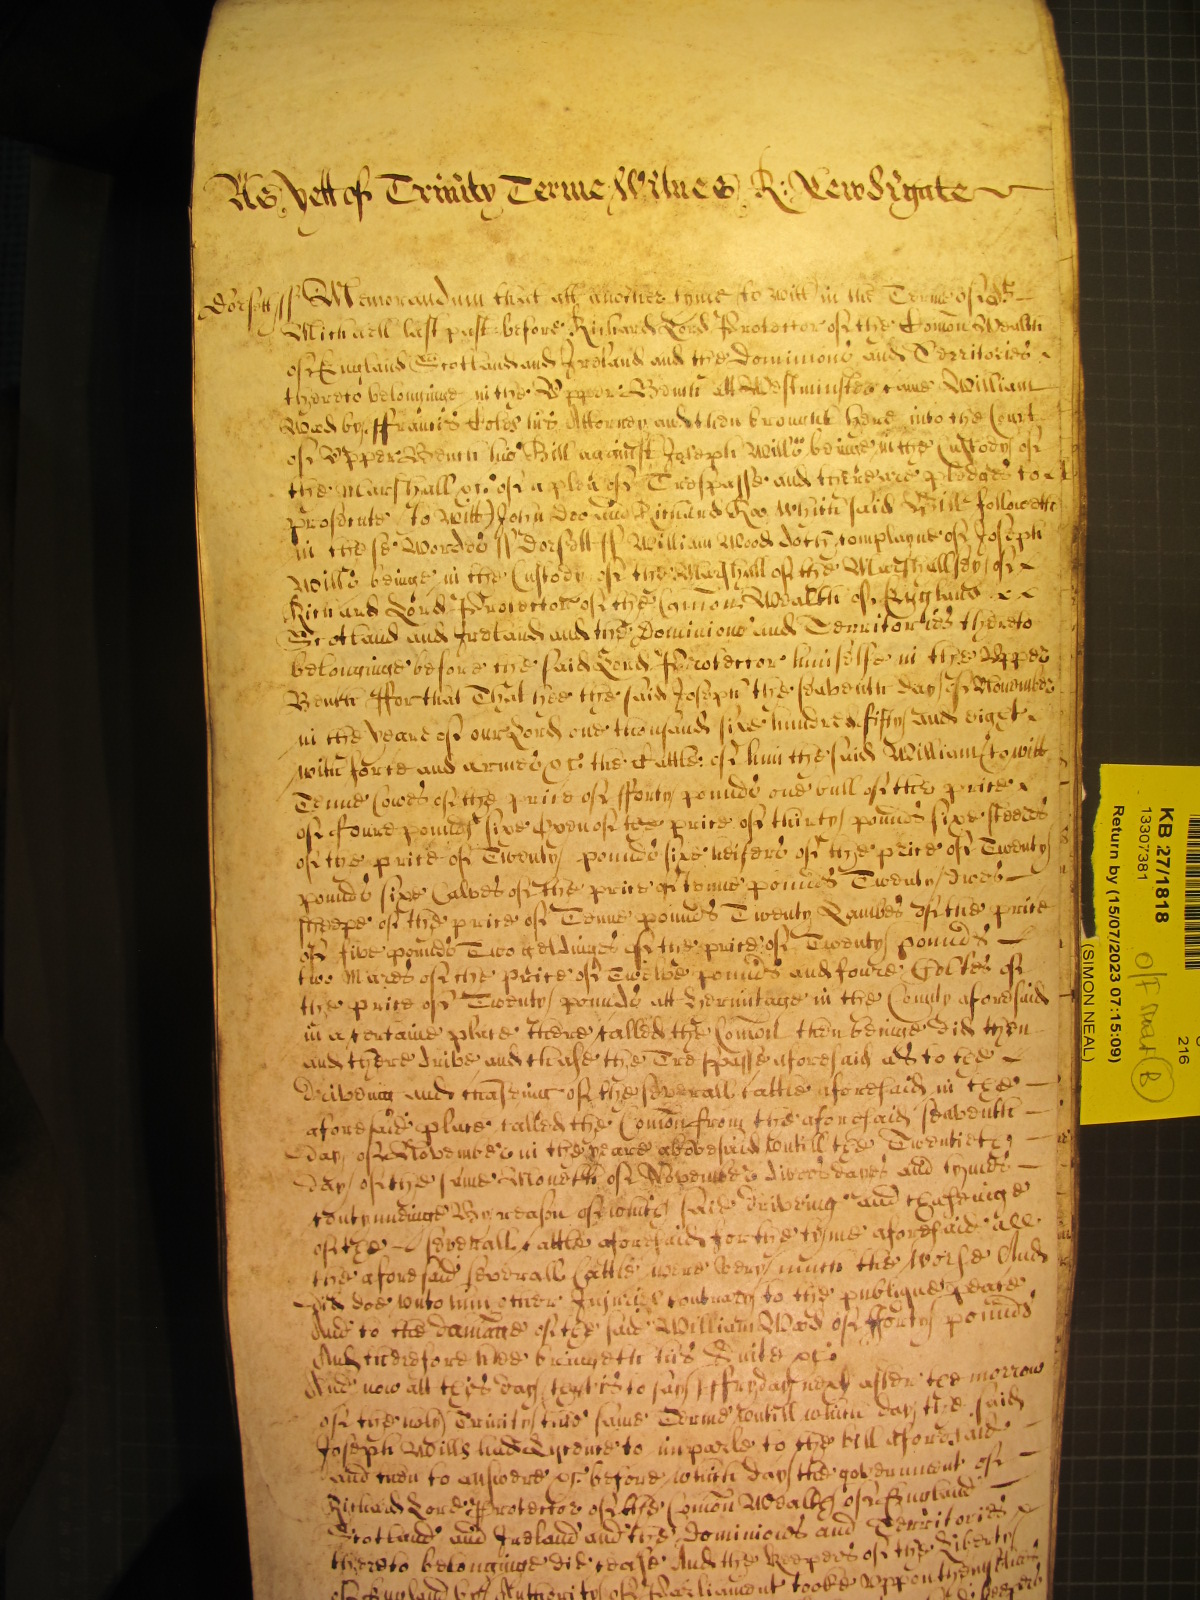 As yett of Trinity Terme Witnes R: Newdigate
Dorsett ss Memorandum that att another tyme (to witt) in the Terme of St
Michaell last past before Richard Lord Protector of the Comon Wealth
of England Scotland and Ireland and the Dominions and Territories
thereto belonginge in the Upper Bench att Westminster came William
Wood by ffrancis Coles his Attorney and then brought here into the Court
of Upper Bench his Bill against Joseph Wills beinge in the Custody of
the Marshall &c: of a plea of Trespasse and there are pledges to
prosecute (to witt) John Doe and Richard Roe Which said Bill followeth
in these Wordes ss Dorsett ss William Wood doth complayne of Joseph
Wills beinge in the Custody of the Marshall of the Marshallsey of
Richard Lord Protector of the Comon Wealth of England
Scotland and Ireland and the Dominions and Territories thereto
belonginge before the said Lord Protector himselfe in the Upper
Bench ffor that That hee the said Joseph the seaventh day of November
in the yeare of our Lord one thousand sixe hundred fifty and eight
with force and armes &c: the Cattle of him the said William (to witt
Tenne Cowes of the price of fforty pounds one bull of the price
of foure pounds sixe Oxen of the price of thirty pounds sixe steeres
of the price of Twenty pounds sixe heifers of the price of Twenty
pounds sixe Calves of the price of tenne pounds Twenty
sheepe of the price of Tenne pounds Twenty Lambes of the price
of five pounds Two geldinges of the price of Twenty pounds
two Mares of the price of Twelve pounds and foure Coltes of
the price of Twenty pounds att Hermitage in the County aforesaid
in a certaine place there called the Comon then beinge did then
and there drive and chase the Trespasse aforesaid as to the
driveing and chaseing of the severall Cattle aforesaid in the
aforesaid place called the Comon from the aforesaid seaventh
day of November in the yeare abovesaid untill the Twentieth
day of the same Moneth of November divers dayes and tymes
contynueinge By reason of which said driveing and chaseinge
of the severall Cattle aforesaid for the tyme aforesaid all
the aforesaid severall Cattle were very much the worse And
did doe unto him other Injuries contrary to the publique peace
And to the damage of the said William Wood of fforty pounds
And therefore hee bringeth his Suite &c:
And now att this day that is to say ffryday next after the morrow
of the holy Trinity this same Terme untill which day the said
Joseph Wills had Lycence to imparle to the bill aforesaid
and then to answere &c: before which day the government of
Richard Lord Protector of the Comon Wealth of England
Scotland and Ireland and the Dominions and Territories
thereto belonginge did cease And the Keepers of the Liberty
of England by Authority of Parliament tooke uppon them
KB 27/1818
13307381
Return by (15/07/2023 07:15:09)
(SIMON NEAL)
216